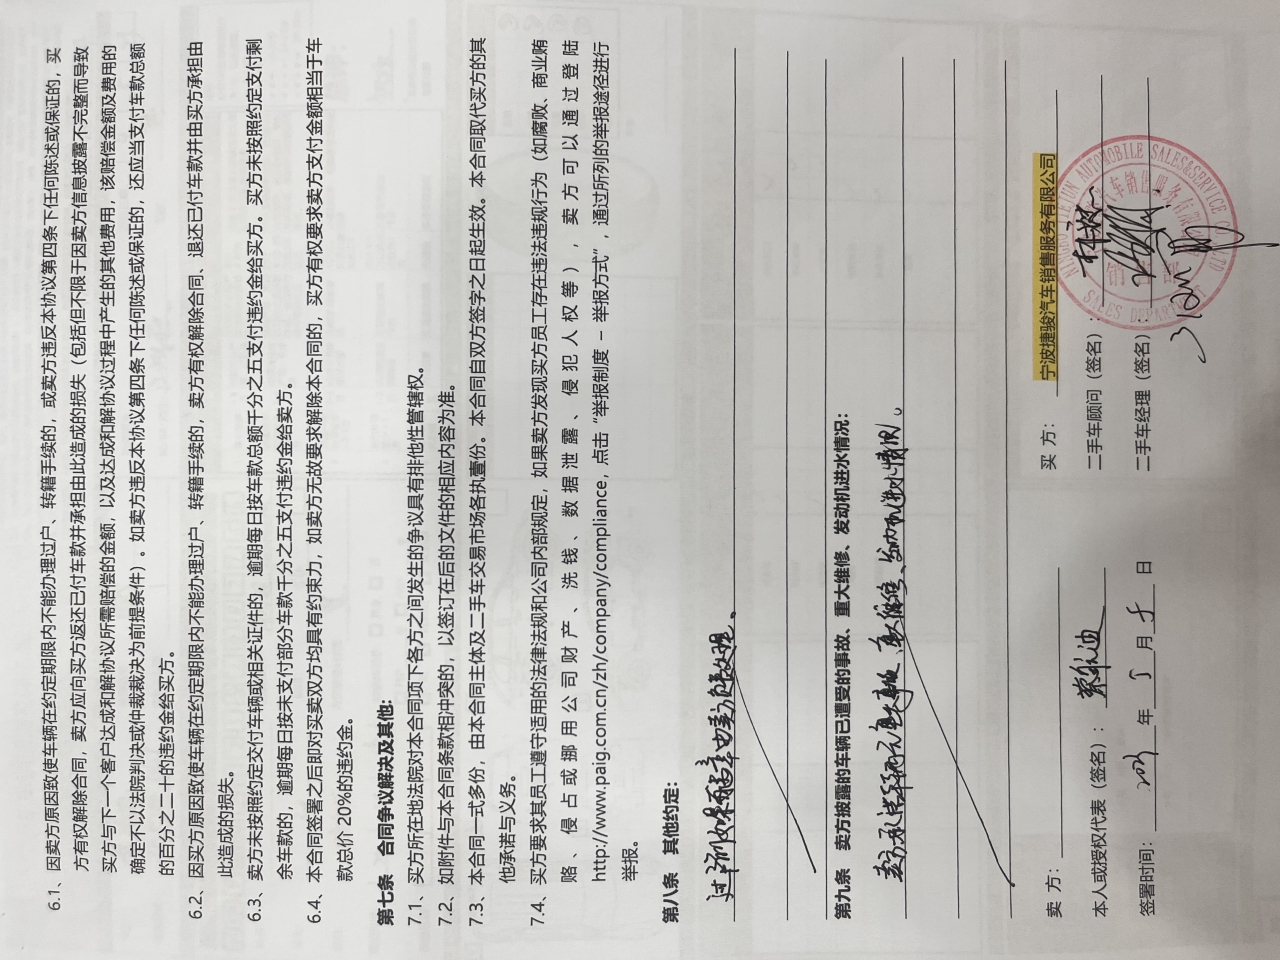 6.1、因卖方原因致使车辆在约定期限内不能办理过户、转籍手续的，或卖方违反本协议第四条下任何陈述或保证的，买
方有权解除合同，卖方应向买方返还已付车款并承担由此造成的损失（包括但不限于因卖方信息披露不完整而导致
买方与下一个客户达成和解协议所需赔偿的金额，以及达成和解协议过程中产生的其他费用，该赔偿金额及费用的
确定不以法院判决或仲裁裁决为前提条件）。如卖方违反本协议第四条下任何陈述或保证的，还应当支付车款总额
的百分之二十的违约金给买方。
6.2、因买方原因致使车辆在约定期限内不能办理过户、转籍手续的，卖方有权解除合同、退还已付车款并由买方承担由
此造成的损失。
6.3、卖方未按照约定交付车辆或相关证件的，逾期每日按车款总额千分之五支付违约金给买方。买方未按照约定支付剩
余车款的，逾期每日按未支付部分车款千分之五支付违约金给卖方。
6.4、本合同签署之后即对买卖双方均具有约束力，如卖方无故要求解除本合同的，买方有权要求卖方支付金额相当于车
款总价 20%的违约金。
第七条 合同争议解决及其他:
7.1、买方所在地法院对本合同项下各方之间发生的争议具有排他性管辖权。
7.2、如附件与本合同条款相冲突的，以签订在后的文件的相应内容为准。
7.3、本合同一式多份，由本合同主体及二手车交易市场各执壹份。本合同自双方签字之日起生效。本合同取代买方的其
他承诺与义务。
7.4、买方要求其员工遵守适用的法律法规和公司内部规定，如果卖方发现买方员工存在违法违规行为（如腐败、商业贿
赂、侵占或挪用公司财产、洗钱、数据泄露、侵犯人权等），卖方可以通过登陆
http://www.paig.com.cn/zh/company/compliance, 点击“举报制度 – 举报方式”，通过所列的举报途径进行
举报。
第八条 其他约定:
过户前
第九条 卖方披露的车辆已遭受的事故、重大维修、发动机进水情况:
卖方承诺车辆无重大事故、重大维修、发动机进水情况。
卖 方：
买 方： 宁波捷骏汽车销售服务有限公司
本人或授权代表（签名）：
二手车顾问（签名）：
签署时间： 年 5 月 5 日
二手车经理（签名）：
AUTOMOBILE SALES&SERVICE
SALES DEPARTMENT